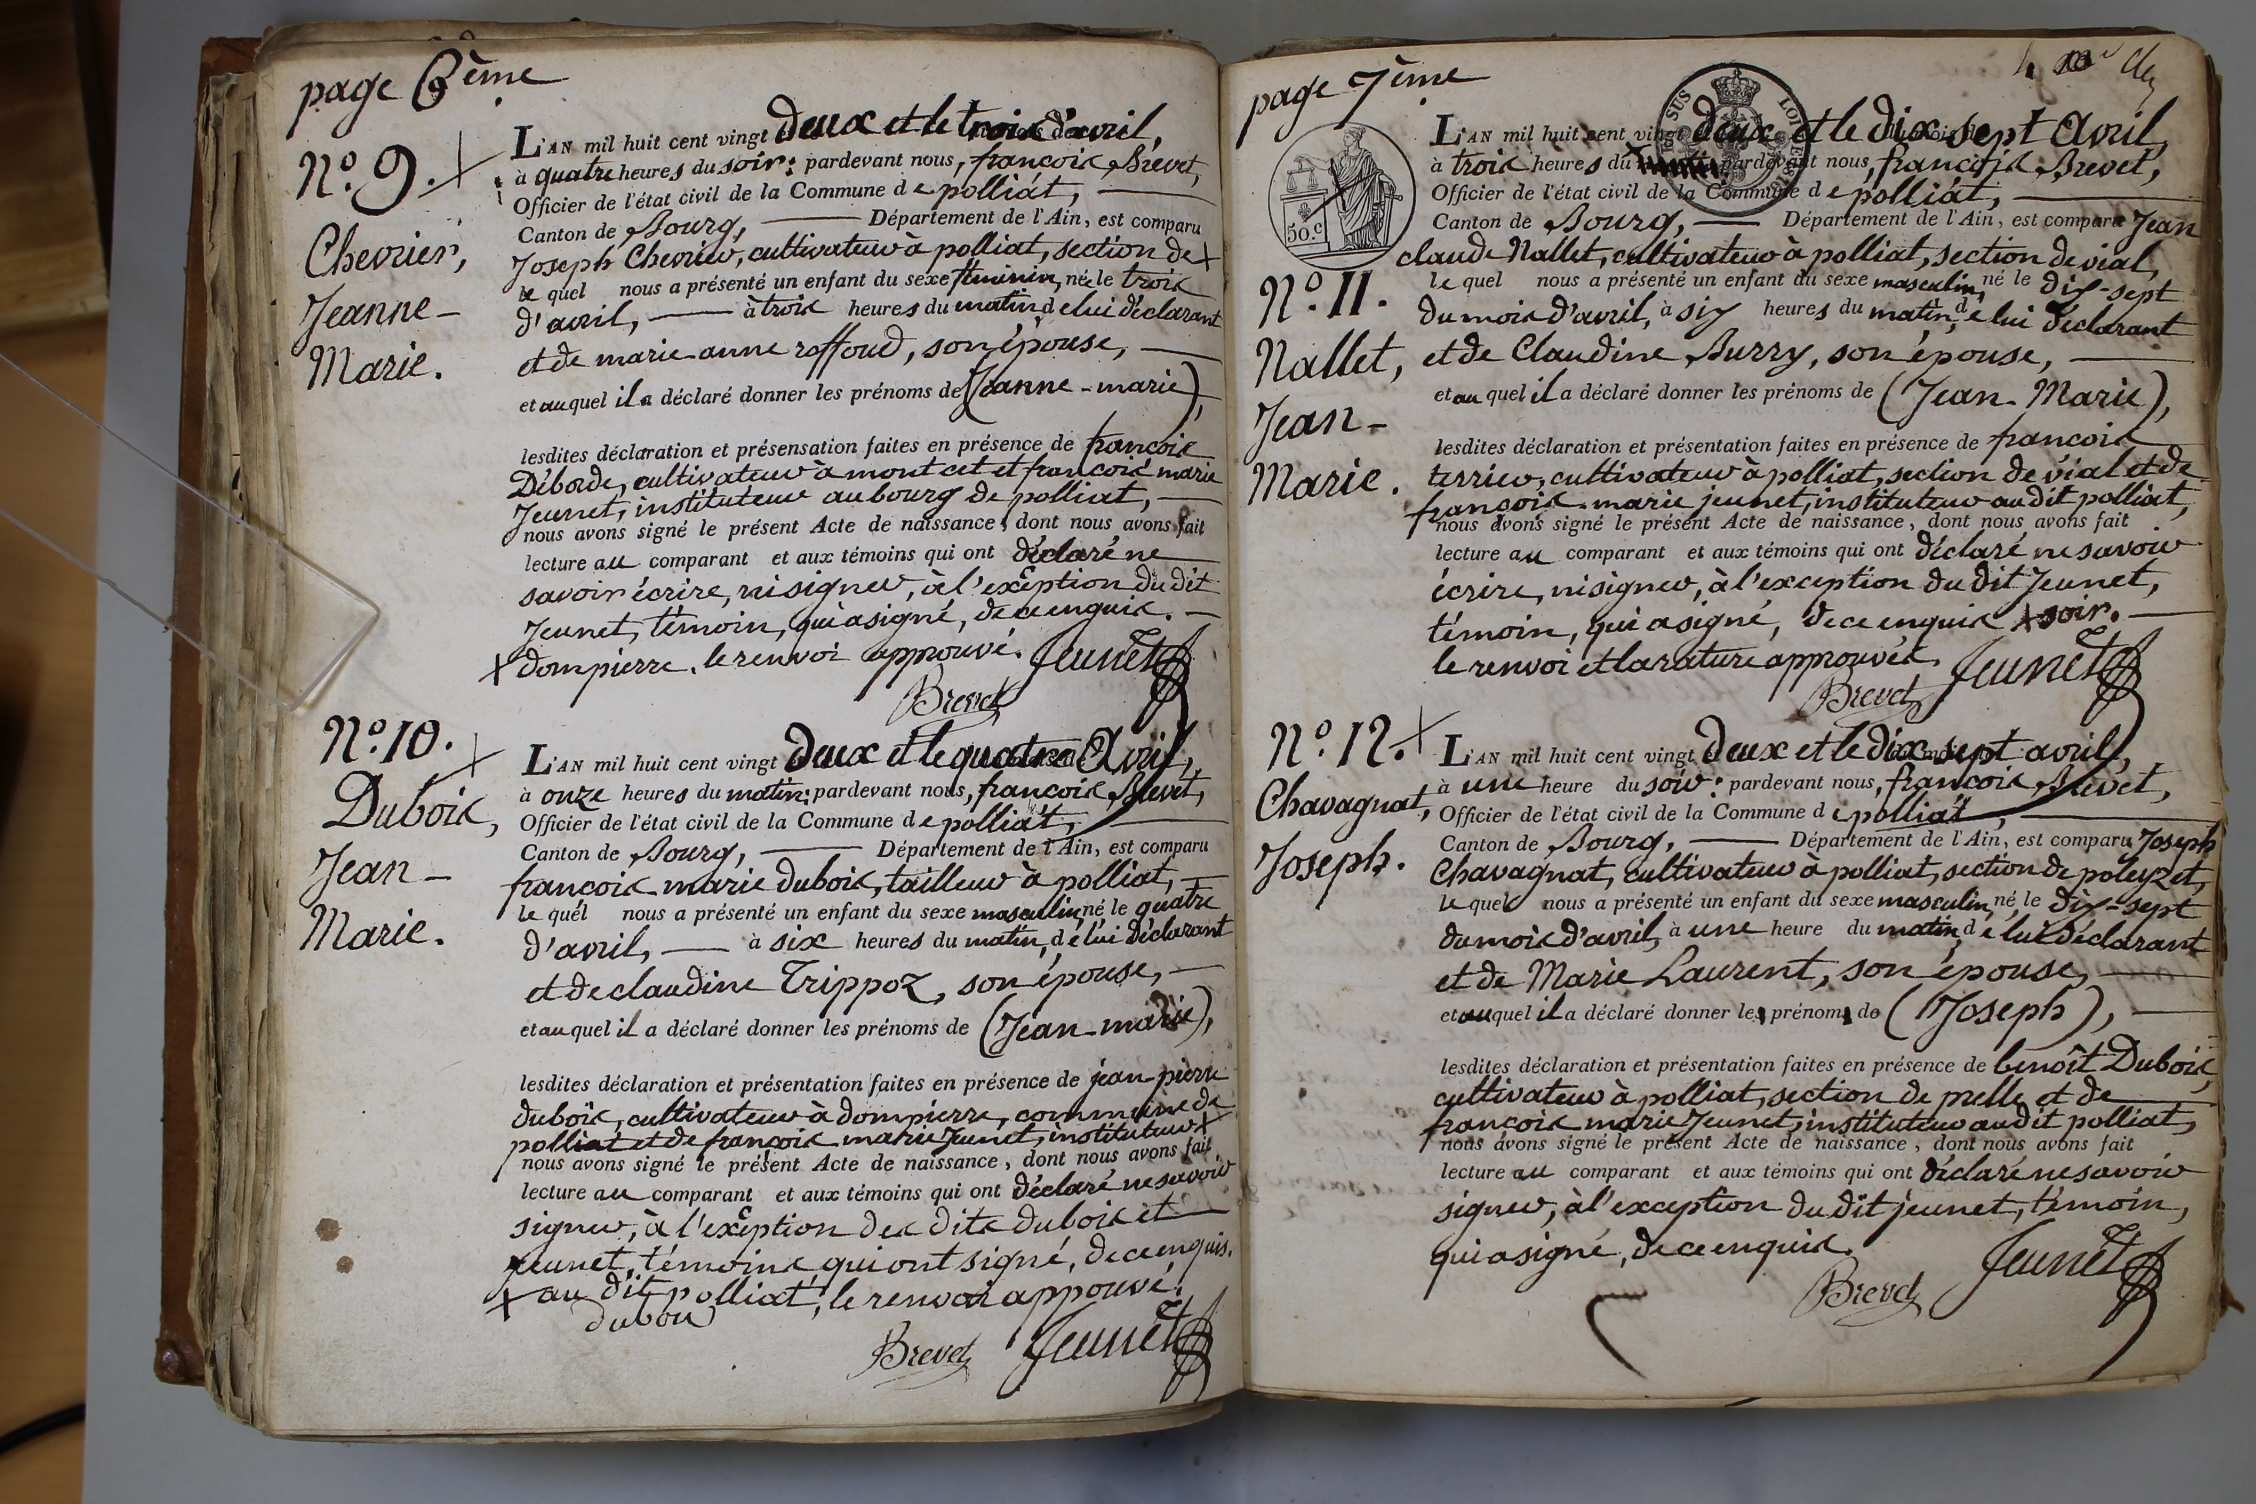 page 6ème
N.º 9.
Chevrier,
Jeanne-
Marie.
L'AN mil huit cent vingt deux et le trois d'avril,
à quatre heures du soir: pardevant nous, françois Brevet,
Officier de l'état civil de la Commune de polliat,
Canton de Bourg, Département de l'Ain, est comparu
Joseph Chevrier, cultivateur à polliat, section de x
le quel nous a présenté un enfant du sexe féminin, née le trois
d'avril, à trois heures du matin, de lui déclarant
et de marie anne roffoud, son épouse,
et auquel il a déclaré donner les prénoms de (Jeanne-marie),
lesdites déclaration et présensation faites en présence de françois
Déborde, cultivateur à montcet et françois marie
Jeunet, instituteur au bourg de polliat,
nous avons signé le présent Acte de naissance, dont nous avons fait
lecture au comparant et aux témoins qui ont déclaré ne
savoir écrire, ni signer, à l'exception du dit
Jeunet, témoin, qui a signé, de ce enquis.
x dompierre. le renvoi approuvé. Jeunet
Brevet
N.º 10.
Dubois,
Jean-
Marie.
L'AN mil huit cent vingt deux et le quatre Avril,
à onze heures du matin: pardevant nous, françois Brevet,
Officier de l'état civil de la Commune de polliat,
Canton de Bourg, Département de l'Ain, est comparu
françois marie dubois, tailleur à polliat,
le quel nous a présenté un enfant du sexe masculin, né le quatre
d'avril, à six heures du matin, de lui déclarant
et de claudine Trippoz, son épouse,
et auquel il a déclaré donner les prénoms de (Jean-marie),
lesdites déclaration et présentation faites en présence de jean-pierre
dubois, cultivateur à dompierre, commune de
polliat et de françois marie Jeunet, instituteur x
nous avons signé le présent Acte de naissance, dont nous avons fait
lecture au comparant et aux témoins qui ont déclaré ne savoir
signer, à l'exception des dits dubois et
jeunet, témoins qui ont signé, de ce enquis.
x au dit polliat, le renvoi approuvé.
dubou
Brevet Jeunet
page 7ème
SUS
LOI DE
50.c
N.º 11.
Nallet,
Jean-
Marie.
L'AN mil huit cent vingt deux et le dix sept Avril,
à trois heures du pardevant nous, françois Brevet,
Officier de l'état civil de la Commune de polliat,
Canton de Bourg, Département de l'Ain, est comparu Jean
claude Nallet, cultivateur à polliat, section de vial,
le quel nous a présenté un enfant du sexe masculin, né le dix-sept
du mois d'avril, à six heures du matin, de lui déclarant
et de Claudine Burry, son épouse,
et au quel il a déclaré donner les prénoms de (Jean-Marie),
lesdites déclaration et présentation faites en présence de françois
terrier, cultivateur à polliat, section de vial et de
françois marie jeunet, instituteur au dit polliat,
nous avons signé le présent Acte de naissance, dont nous avons fait
lecture au comparant et aux témoins qui ont déclaré ne savoir
écrire, ni signer, à l'exception du dit Jeunet,
témoin, qui a signé, de ce enquis x soir.
le renvoi et la rature approuvés. Jeunet
Brevet
N.º 12.
Chavagnat,
Joseph.
L'AN mil huit cent vingt deux et le dix sept avril,
à une heure du soir: pardevant nous, françois Brevet,
Officier de l'état civil de la Commune de polliat,
Canton de Bourg, Département de l'Ain, est comparu Joseph
Chavagnat, cultivateur à polliat, section de poleyzet,
le quel nous a présenté un enfant du sexe masculin, né le dix-sept
du mois d'avril, à une heure du matin, de lui déclarant
et de Marie Laurent, son épouse,
et auquel il a déclaré donner les prénoms de (Joseph),
lesdites déclaration et présentation faites en présence de benoît Dubois,
cultivateur à polliat, section de prelle et de
françois marie Jeunet, instituteur au dit polliat,
nous avons signé le présent Acte de naissance, dont nous avons fait
lecture au comparant et aux témoins qui ont déclaré ne savoir
signer, à l'exception du dit jeunet, témoin,
qui a signé, de ce enquis.
Jeunet
Brevet